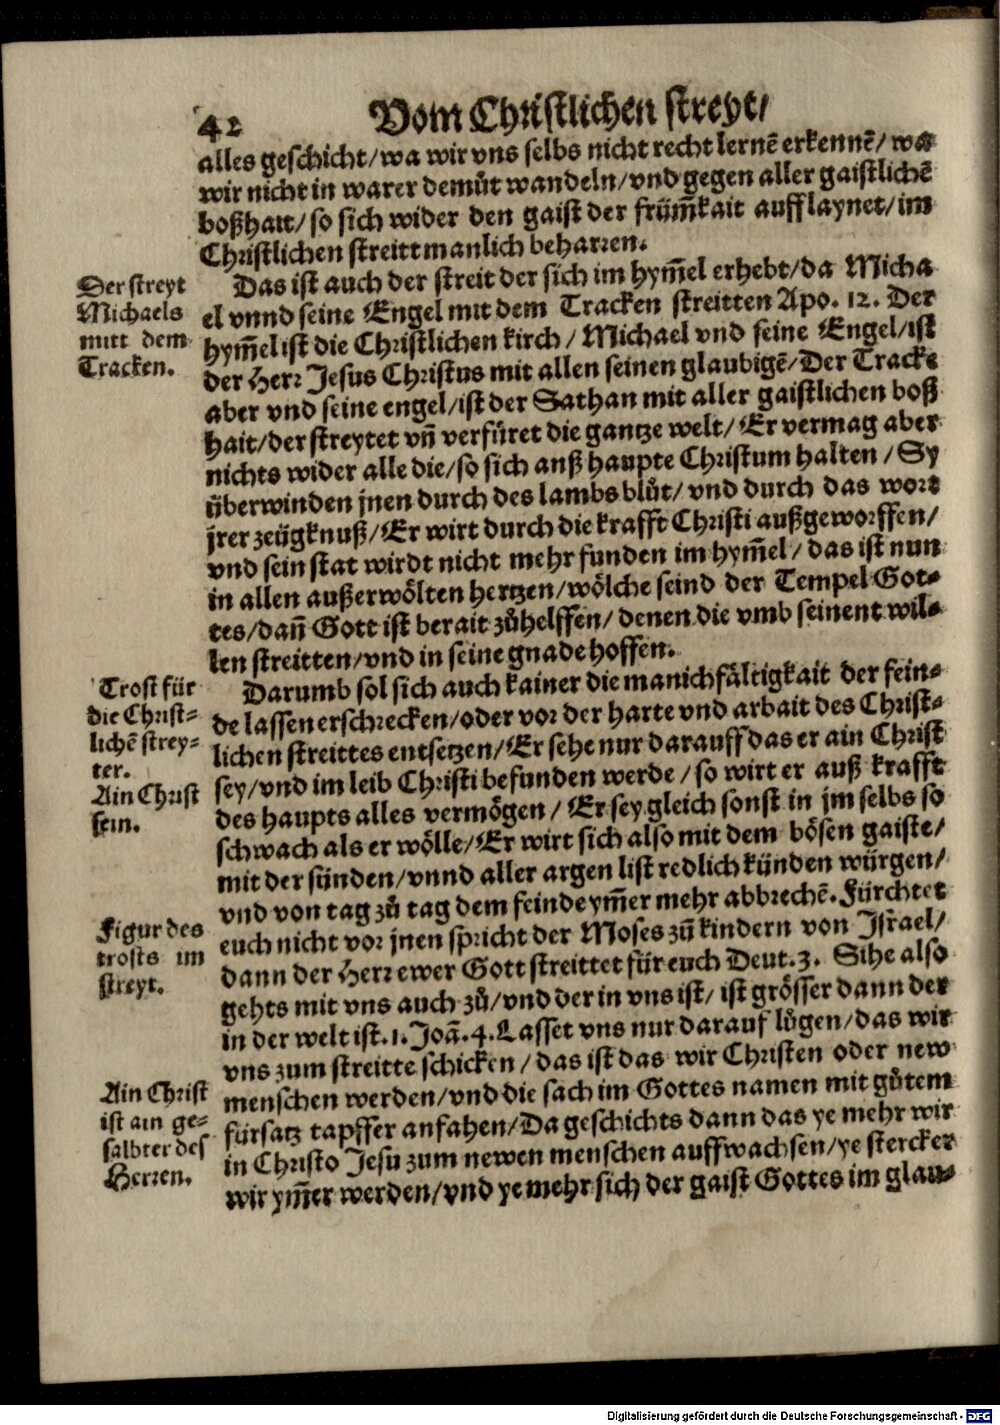 42
Vom Christlichen streyt/
alles geschicht/wa wir vns selbs nicht recht lernē erkennē/ wa
wir nicht in warer demůt wandeln/vnd gegen aller gaistlichē
boßhait/so sich wider den gaist der frūm̄kait aufflaynet/im
Christlichen streitt manlich beharren.
Der streyt
Michaels
mitt dem
Tracken.
Das ist auch der streit der sich im hym̄el erhebt/da Micha
el vnnd seine Engel mit dem Tracken streitten Apo. 12. Der
hym̄el ist die Christlichen kirch / Michael vnd seine Engel/ist
der Herr Jesus Christus mit allen seinen glaubigē/Der Tracke
aber vnd seine engel/ist der Sathan mit aller gaistlichen boß
hait/der streytet vn̄ verfüret die gantze welt/Er vermag aber
nichts wider alle die/so sich anß haupte Christum halten /Sy
überwinden jnen durch des lambs blůt/ vnd durch das wort
jrer zeügknuß/Er wirt durch die krafft Christi außgeworffen/
vnd sein stat wirdt nicht mehr funden im hym̄el/ das ist nun
in allen außerwölten hertzen/wölche seind der Tempel Got-
tes/dan̄ Gott ist berait zůhelffen/ denen die vmb seinent wil-
len streitten/vnd in seine gnade hoffen.
Trost für
die Christ-
lichē strey-
ter.
Ain Christ
sein.
Darumb sol sich auch kainer die manichfältigkait der fein-
de lassen erschrecken/oder vor der harte vnd arbait des Christ-
lichen streittes entsetzen/Er sehe nur darauff das er ain Christ
sey/vnd im leib Christi befunden werde /so wirt er auß krafft
des haupts alles vermögen / Er sey gleich sonst in jm selbs so
schwach als er wölle/Er wirt sich also mit dem bösen gaiste/
mit der sünden/vnnd aller argen list redlich künden würgen/
vnd von tag zů tag dem feinde ym̄er mehr abbrechē. Fürchtet
Figur des
trosts im
streyt.
euch nicht vor jnen spricht der Moses zů kindern von Jsrael/
dann der Herr ewer Gott streittet für euch Deut.3. Sihe also
gehts mit vns auch zů/vnd der in vns ist/ ist grösser dann der
in der welt ist.1.Joā.4. Lasset vns nur darauf lůgen/das wir
vns zum streitte schicken / das ist das wir Christen oder new
Ain Christ
ist ain ge-
salbter des
Herren.
menschen werden/vnd die sach im Gottes namen mit gůtem
fürsatz tapffer anfahen/Da geschichts dann das ye mehr wir
in Christo Jesu zum newen menschen auffwachsen/ye stercker
wir ym̄er werden/vnd ye mehr sich der gaist Gottes im glau-
Digitalisierung gefördert durch die Deutsche Forschungsgemeinschaft - DFG